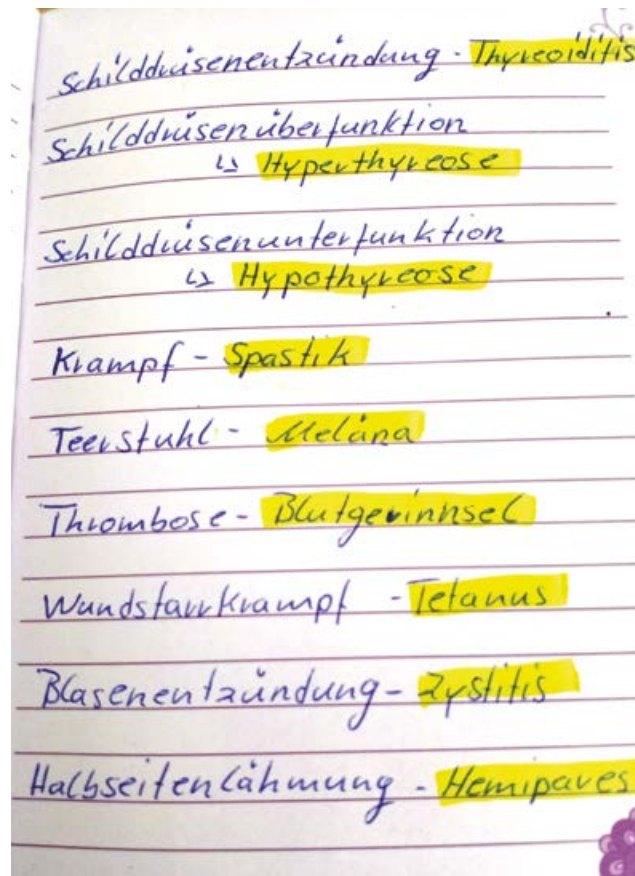 Schilddrüsenentzündung - Thyreoiditis
Schilddrüsenüberfunktion
↳ Hyperthyreose
Schilddrüsenunterfunktion
↳ Hypothyreose
Krampf - Spastik
Teerstuhl - Meläna
Thrombose - Blutgerinnsel
Wundstarrkrampf - Tetanus
Blasenentzündung - Zystitis
Halbseitenlähmung - Hemipares